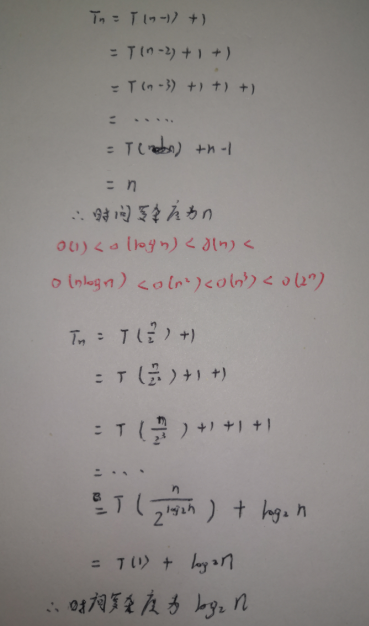 Tn = T(n-1) + 1
= T(n-2) + 1 + 1
= T(n-3) + 1 + 1 + 1
= .....
= T( ) + n-1
= n
∴ 时间复杂度为n
O(1) < O(logn) < O(n) <
O(nlogn) < O(n²) < O(n³) < O(2ⁿ)
Tn = T(n/2) + 1
= T(n/2²) + 1 + 1
= T(n/2³) + 1 + 1 + 1
= ...
= T(n/2^(log₂n)) + log₂n
= T(1) + log₂n
∴ 时间复杂度为 log₂n